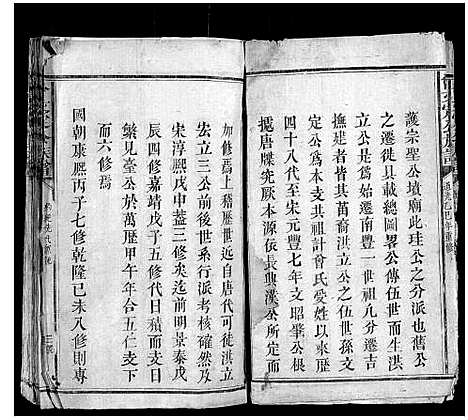 護宗聖公墳廟此珪公之分派也舊公
之遷徙具載總圖畧公傳伍世而生洪
立公是分遷南豐一世祖凡分遷吉
撫延者皆其苗裔洪立公五世孫文
定公為本支共祖計曾氏受姓以來
四十八代至宋元豐七年文昭肇公根
㨿唐牒究厥本源依長興漢公所定而
加修焉上稽歷世近自唐代可徙洪立
去立三公前後世系行派考核確然及
宋淳熙戊申葢三修矣迄前明景泰戊
辰四修嘉靖戊子五修代日積而支日
繁見臺公於萬歷甲午年合五仁支下
而六修焉
國朝康熙丙子七修乾隆己未八修則專